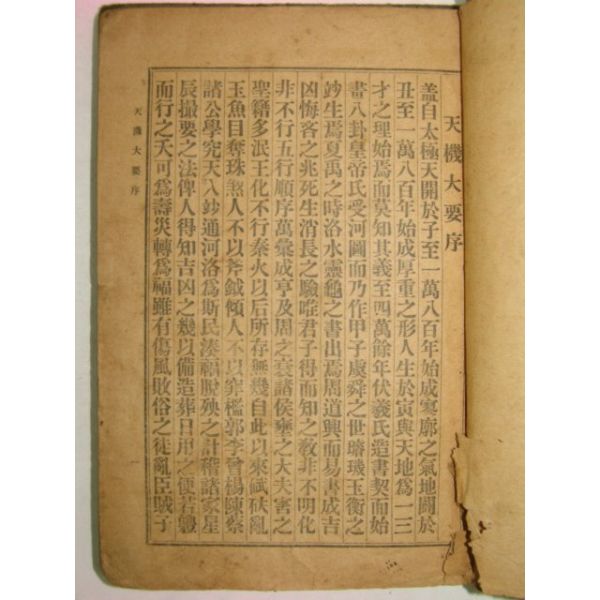 天機大要序
盖自太極天開於子至一萬八百年始成寥廓之氣地闢於
丑至一萬八百年始成厚重之形人生於寅與天地爲一三
才之理始焉而莫知其義至四萬餘年伏羲氏造書契而始
畫八卦皇帝氏受河圖而乃作甲子虞舜之世璿璣玉衡之
玅生焉夏禹之時洛水靈龜之書出焉周道興而易書成吉
凶悔吝之兆死生消長之驗唯君子得而知之敎非不明化
非不行五行順序萬彙成亨及周之衰諸侯壅之大夫害之
聖籍多泯王化不行秦火以后所存無幾自此以來
玉魚目奪珠煞人不以斧鉞傾人不以穽檻郭李曾楊陳蔡
諸公學究天入玅通河洛爲斯民湊福脫殃之計稽諸家星
辰撮要之法俾人得知吉凶之幾以備造葬日用之便若
而行之夭可爲壽災轉爲福雖有傷風敗俗之徒亂臣賊子
天機大要序